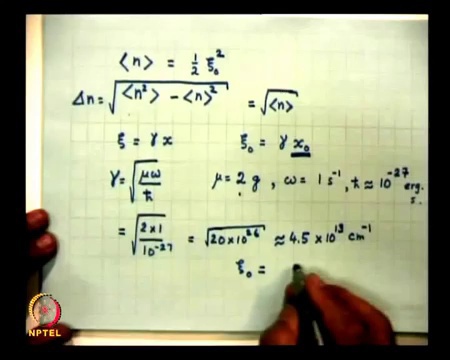 ⟨n⟩ = 1/2 ξ₀²
Δn = √(⟨n²⟩ - ⟨n⟩²) = √⟨n⟩
ξ = γx ξ₀ = γ x₀
γ = √(μω/ħ) μ = 2 g, ω = 1 s⁻¹, ħ ≈ 10⁻²⁷ erg. s.
= √(2×1/10⁻²⁷) = √(20×10²⁶) ≈ 4.5 × 10¹³ cm⁻¹
ξ₀ =
NPTEL